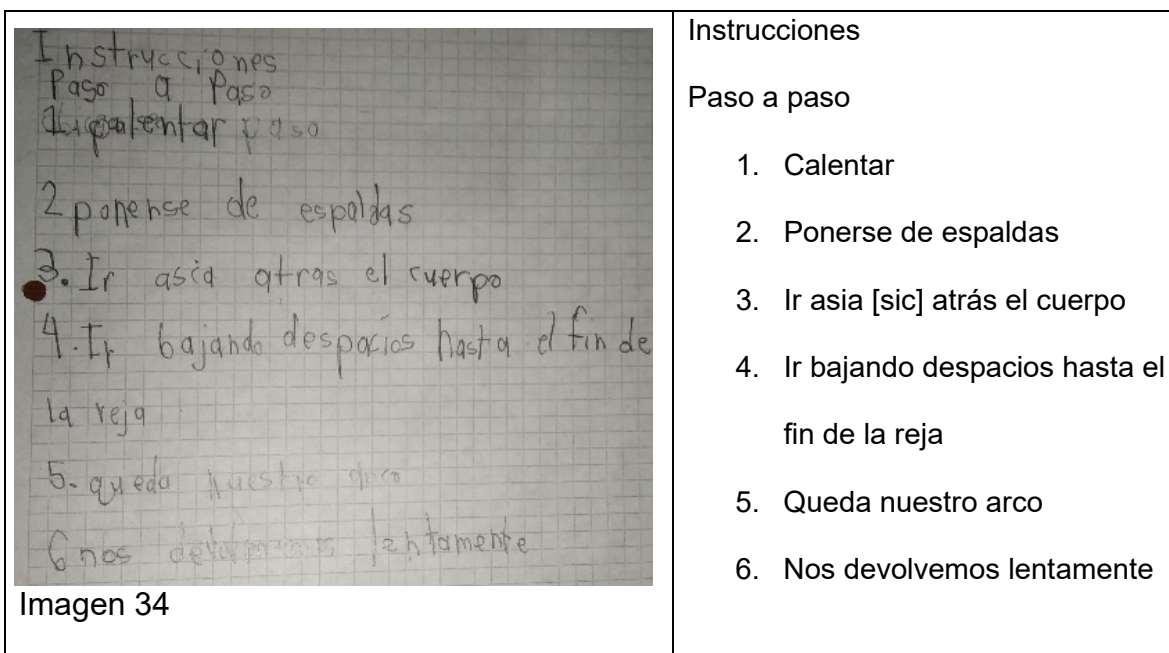 Instrucciones
Paso a Paso
1. calentar paso
2 ponense de espaldas
3. Ir asia atras el cuerpo
4. Ir bajando despacios hasta el fin de
la reja
5. queda nuestro arco
6 nos devolvemos lentamente
Imagen 34
Instrucciones
Paso a paso
1. Calentar
2. Ponerse de espaldas
3. Ir asia [sic] atrás el cuerpo
4. Ir bajando despacios hasta el
fin de la reja
5. Queda nuestro arco
6. Nos devolvemos lentamente